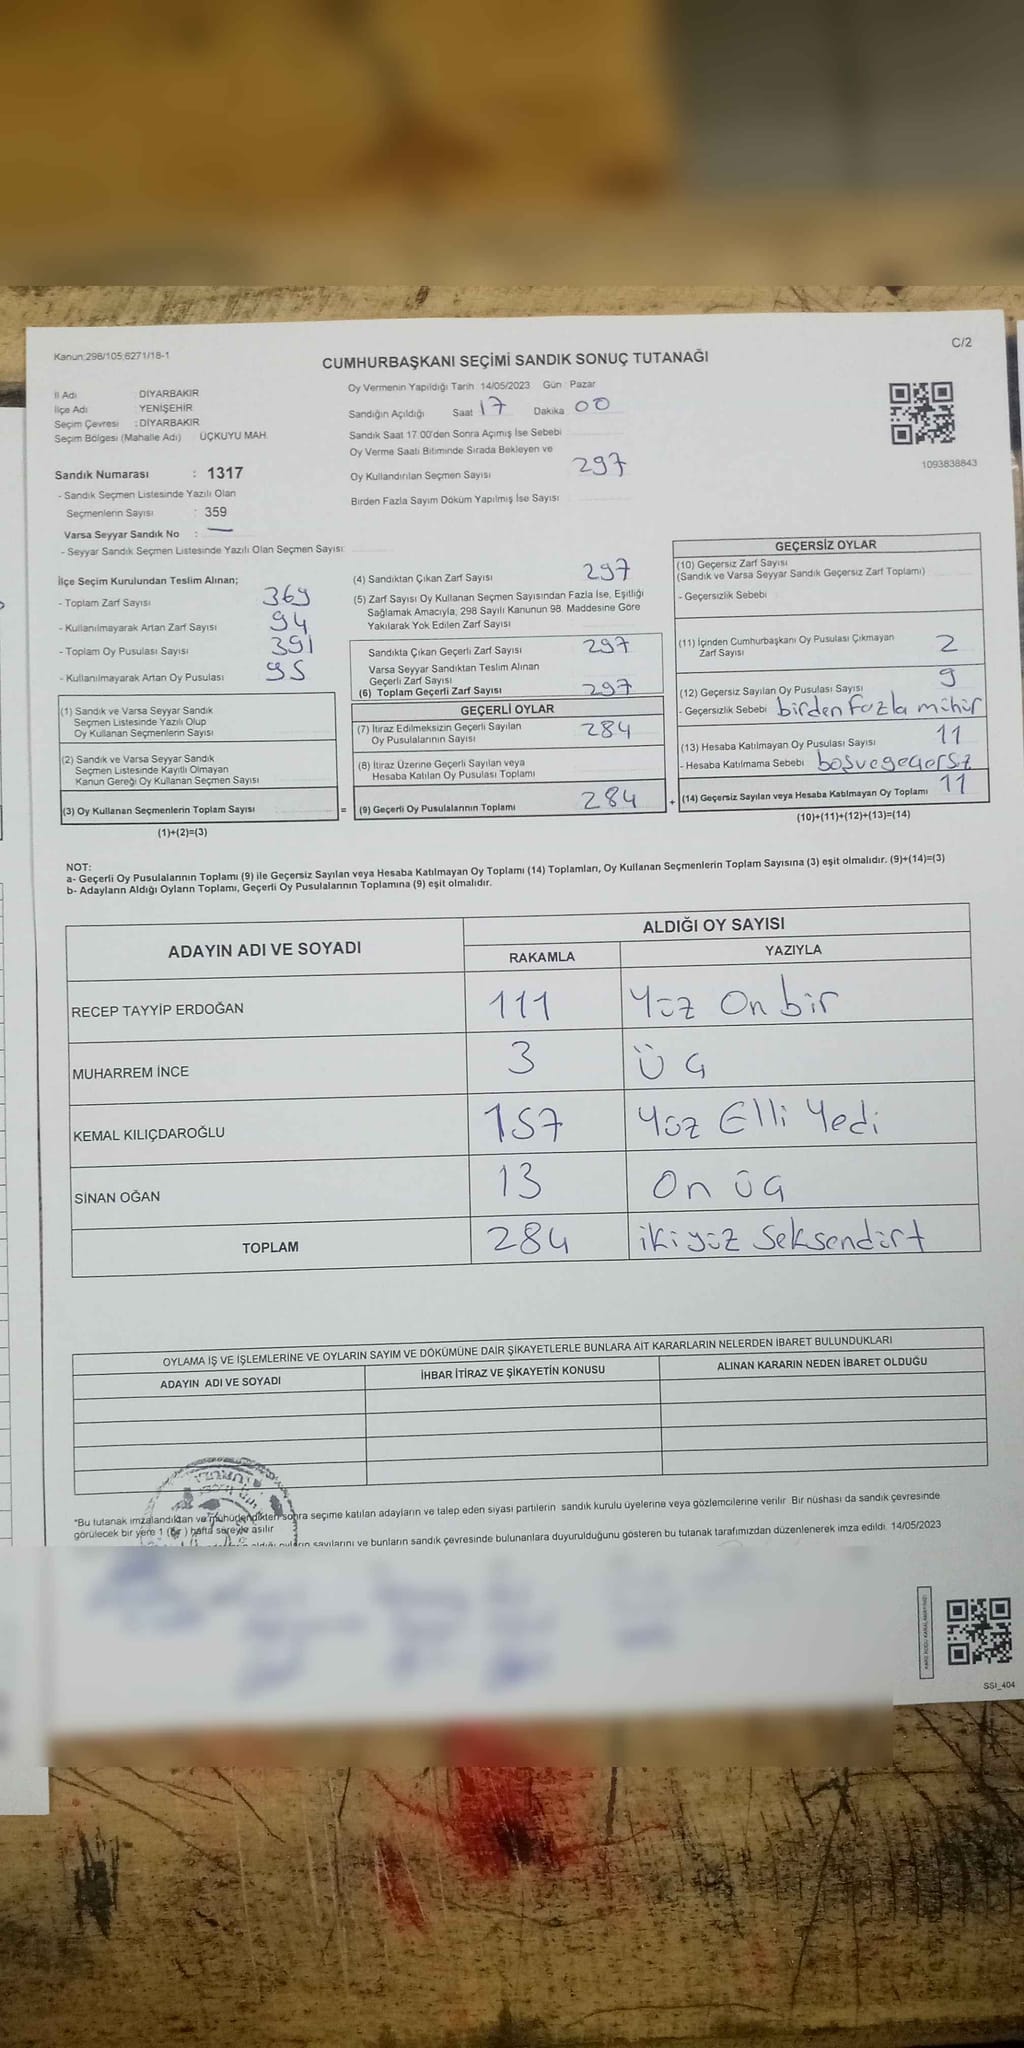 Kanun:298/105;6271/18-1
C/2
CUMHURBAŞKANI SEÇİMİ SANDIK SONUÇ TUTANAĞI
İl Adı : DİYARBAKIR
İlçe Adı : YENİŞEHİR
Seçim Çevresi : DİYARBAKIR
Seçim Bölgesi (Mahalle Adı) ÜÇKUYU MAH.
Oy Vermenin Yapıldığı Tarih 14/05/2023 Gün : Pazar
Sandığın Açıldığı Saat 17 Dakika 00
Sandık Saat 17:00'den Sonra Açımış İse Sebebi
Oy Verme Saati Bitiminde Sırada Bekleyen ve
Oy Kullandırılan Seçmen Sayısı 297
Birden Fazla Sayım Döküm Yapılmış İse Sayısı
1093838843
Sandık Numarası : 1317
- Sandık Seçmen Listesinde Yazılı Olan
Seçmenlerin Sayısı : 359
Varsa Seyyar Sandık No : —
- Seyyar Sandık Seçmen Listesinde Yazılı Olan Seçmen Sayısı:
İlçe Seçim Kurulundan Teslim Alınan;
- Toplam Zarf Sayısı 369
- Kullanılmayarak Artan Zarf Sayısı 94
- Toplam Oy Pusulası Sayısı 391
- Kullanılmayarak Artan Oy Pusulası 95
(1) Sandık ve Varsa Seyyar Sandık
Seçmen Listesinde Yazılı Olup
Oy Kullanan Seçmenlerin Sayısı
(2) Sandık ve Varsa Seyyar Sandık
Seçmen Listesinde Kayıtlı Olmayan
Kanun Gereği Oy Kullanan Seçmen Sayısı
(3) Oy Kullanan Seçmenlerin Toplam Sayısı
(1)+(2)=(3)
(4) Sandıktan Çıkan Zarf Sayısı 297
(5) Zarf Sayısı Oy Kullanan Seçmen Sayısından Fazla İse, Eşitliği
Sağlamak Amacıyla, 298 Sayılı Kanunun 98. Maddesine Göre
Yakılarak Yok Edilen Zarf Sayısı
Sandıkta Çıkan Geçerli Zarf Sayısı 297
Varsa Seyyar Sandıktan Teslim Alınan
Geçerli Zarf Sayısı
(6) Toplam Geçerli Zarf Sayısı 297
GEÇERLİ OYLAR
(7) İtiraz Edilmeksizin Geçerli Sayılan
Oy Pusulalarının Sayısı 284
(8) İtiraz Üzerine Geçerli Sayılan veya
Hesaba Katılan Oy Pusulası Toplamı
= (9) Geçerli Oy Pusulalarının Toplamı 284 +
GEÇERSİZ OYLAR
(10) Geçersiz Zarf Sayısı
(Sandık ve Varsa Seyyar Sandık Geçersiz Zarf Toplamı)
- Geçersizlik Sebebi
(11) İçinden Cumhurbaşkanı Oy Pusulası Çıkmayan
Zarf Sayısı 2
(12) Geçersiz Sayılan Oy Pusulası Sayısı 9
- Geçersizlik Sebebi birden fazla mühür
(13) Hesaba Katılmayan Oy Pusulası Sayısı 11
- Hesaba Katılmama Sebebi boşvegeçersz
(14) Geçersiz Sayılan veya Hesaba Katılmayan Oy Toplamı 11
(10)+(11)+(12)+(13)=(14)
NOT:
a- Geçerli Oy Pusulalarının Toplamı (9) ile Geçersiz Sayılan veya Hesaba Katılmayan Oy Toplamı (14) Toplamları, Oy Kullanan Seçmenlerin Toplam Sayısına (3) eşit olmalıdır. (9)+(14)=(3)
b- Adayların Aldığı Oyların Toplamı, Geçerli Oy Pusulalarının Toplamına (9) eşit olmalıdır.
ADAYIN ADI VE SOYADI
ALDIĞI OY SAYISI
RAKAMLA YAZIYLA
RECEP TAYYİP ERDOĞAN 111 Yüz On bir
MUHARREM İNCE 3 Üç
KEMAL KILIÇDAROĞLU 157 Yüz Elli Yedi
SİNAN OĞAN 13 On üç
TOPLAM 284 iki yüz Seksendört
OYLAMA İŞ VE İŞLEMLERİNE VE OYLARIN SAYIM VE DÖKÜMÜNE DAİR ŞİKAYETLERLE BUNLARA AİT KARARLARIN NELERDEN İBARET BULUNDUKLARI
ADAYIN ADI VE SOYADI İHBAR İTİRAZ VE ŞİKAYETİN KONUSU ALINAN KARARIN NEDEN İBARET OLDUĞU
*Bu tutanak imzalandıktan ve mühürlendikten sonra seçime katılan adayların ve talep eden siyasi partilerin sandık kurulu üyelerine veya gözlemcilerine verilir. Bir nüshası da sandık çevresinde
görülecek bir yere 1 (bir) hafta süreyle asılır.
sayılarını ve bunların sandık çevresinde bulunanlara duyurulduğunu gösteren bu tutanak tarafımızdan düzenlenerek imza edildi. 14/05/2023
SSI_404